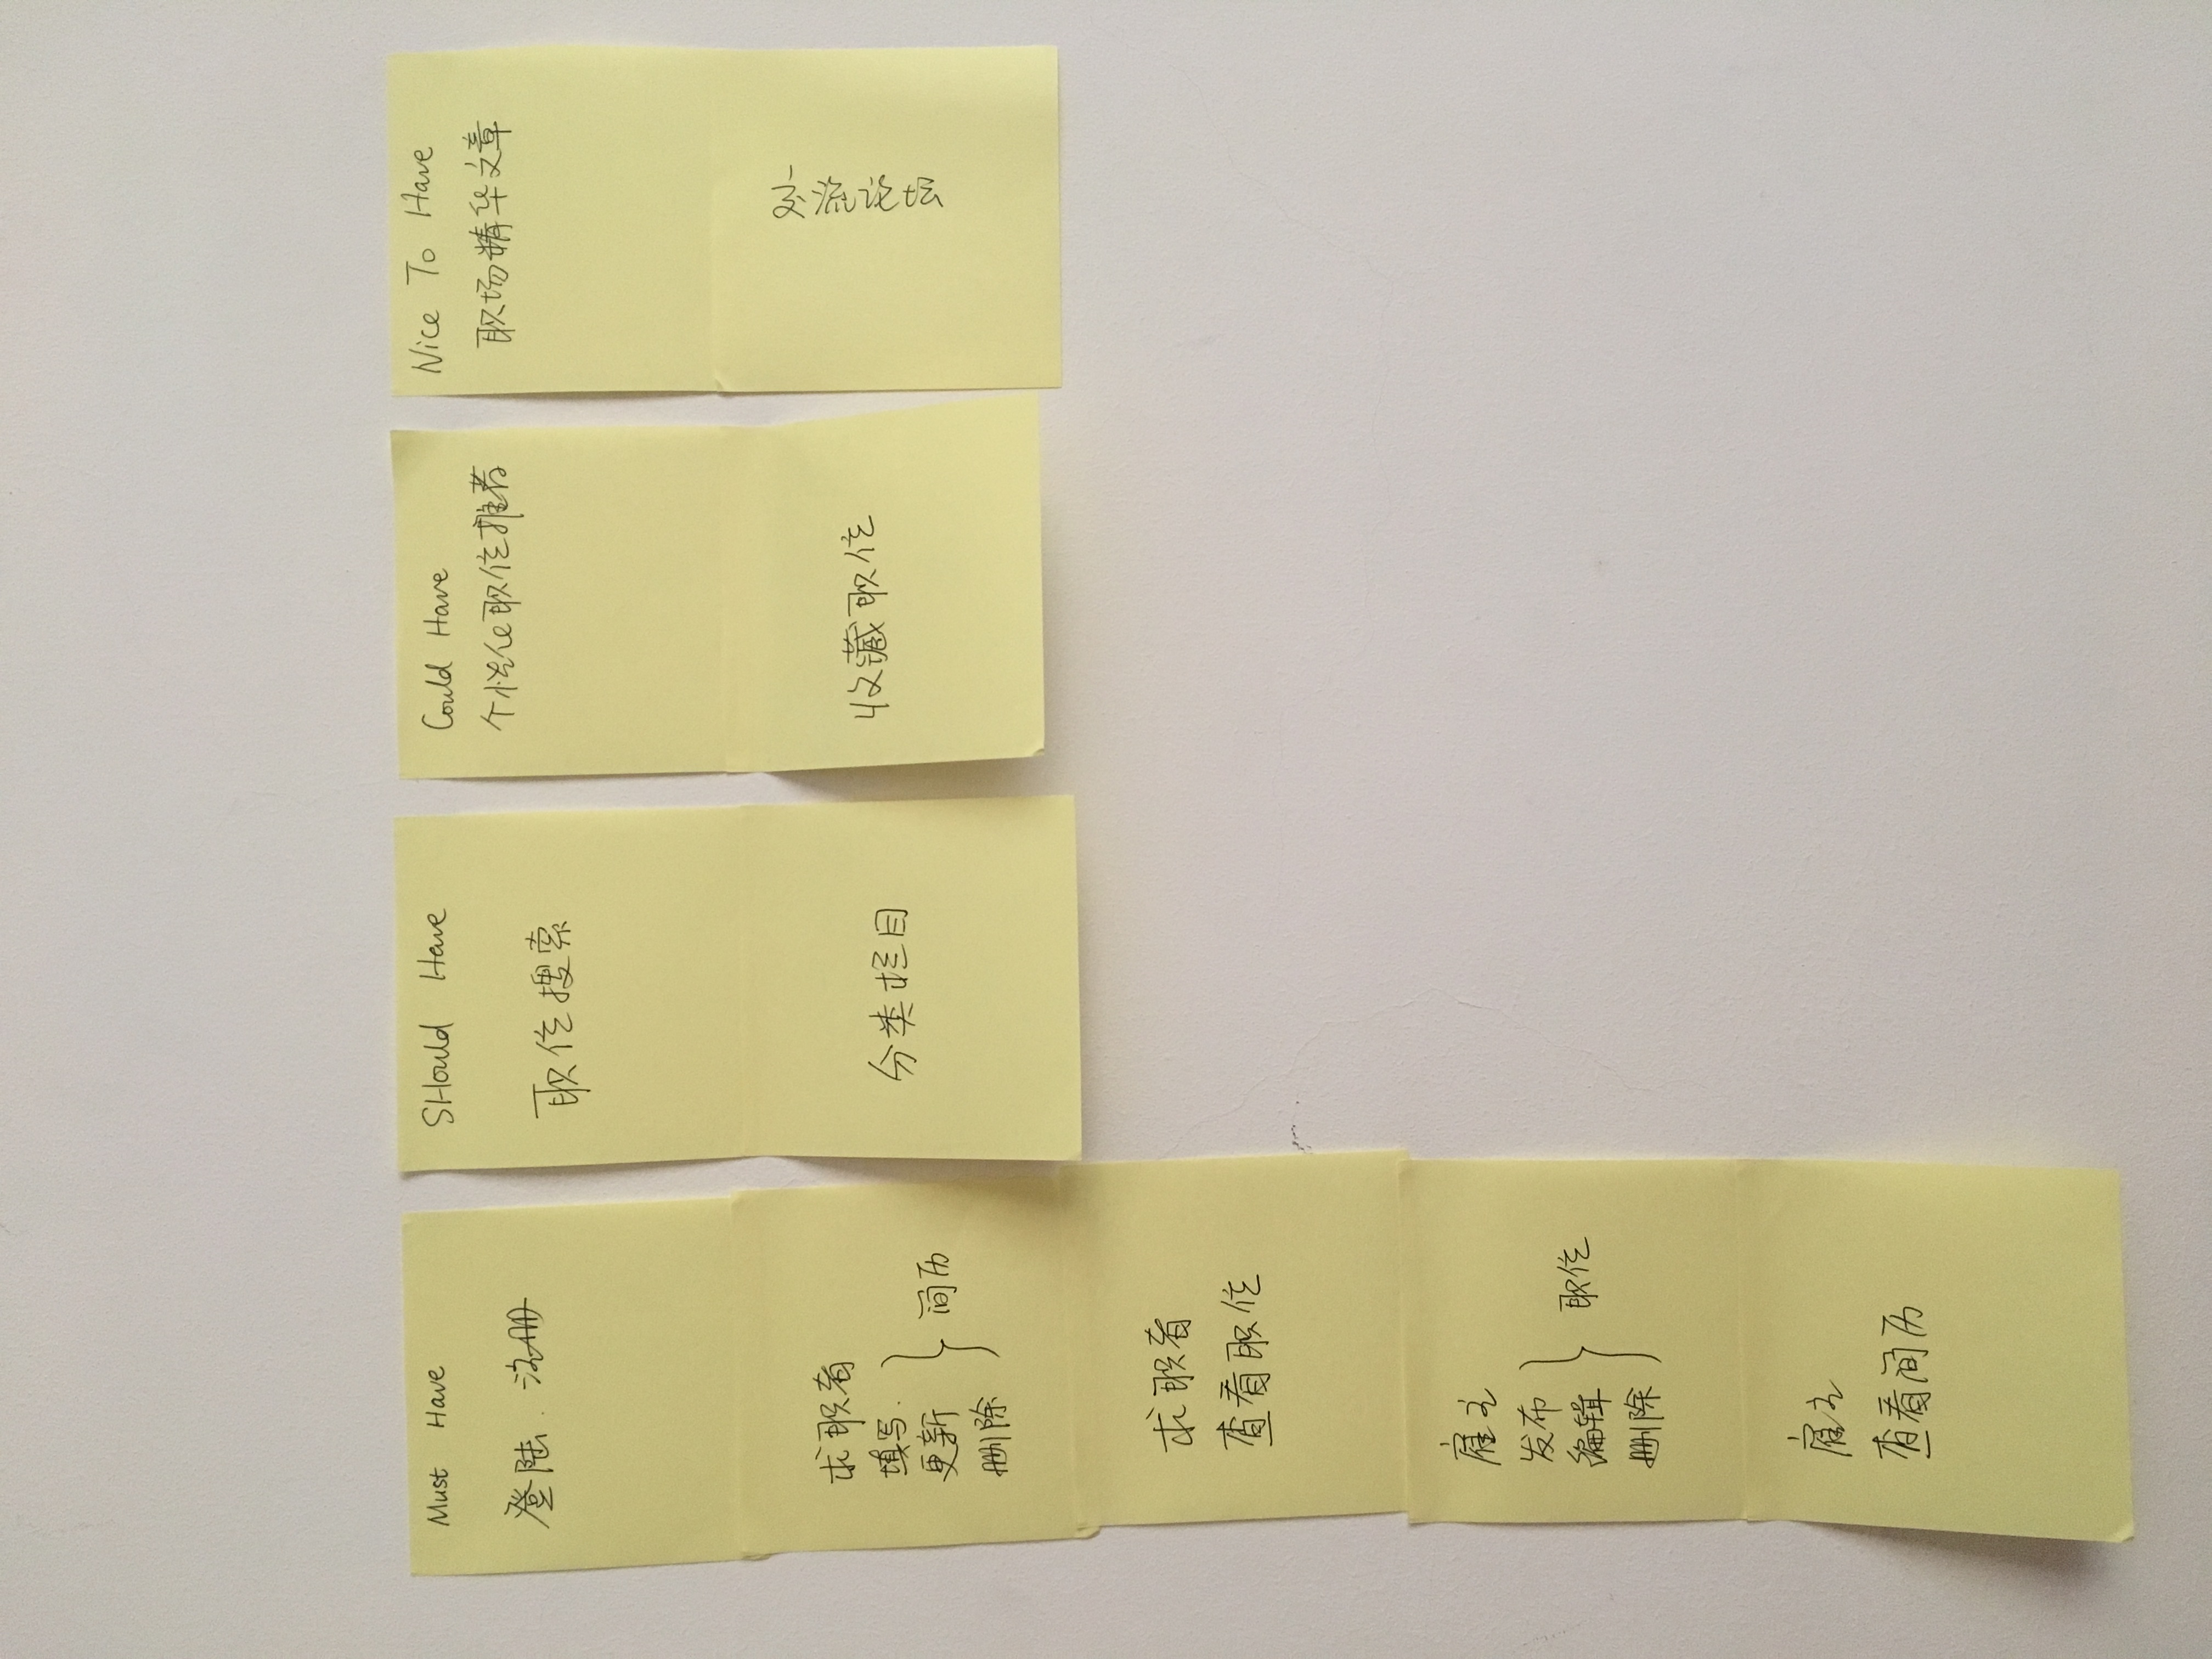 Must Have
登陆. 注册
求职者
填写.
更新
删除
简历
求职者
查看职位
雇主
发布
编辑
删除
职位
雇主
查看简历
SHould Have
职位搜索
分类栏目
Could Have
个性化职位推荐
收藏职位
Nice To Have
职场精华文章
交流论坛